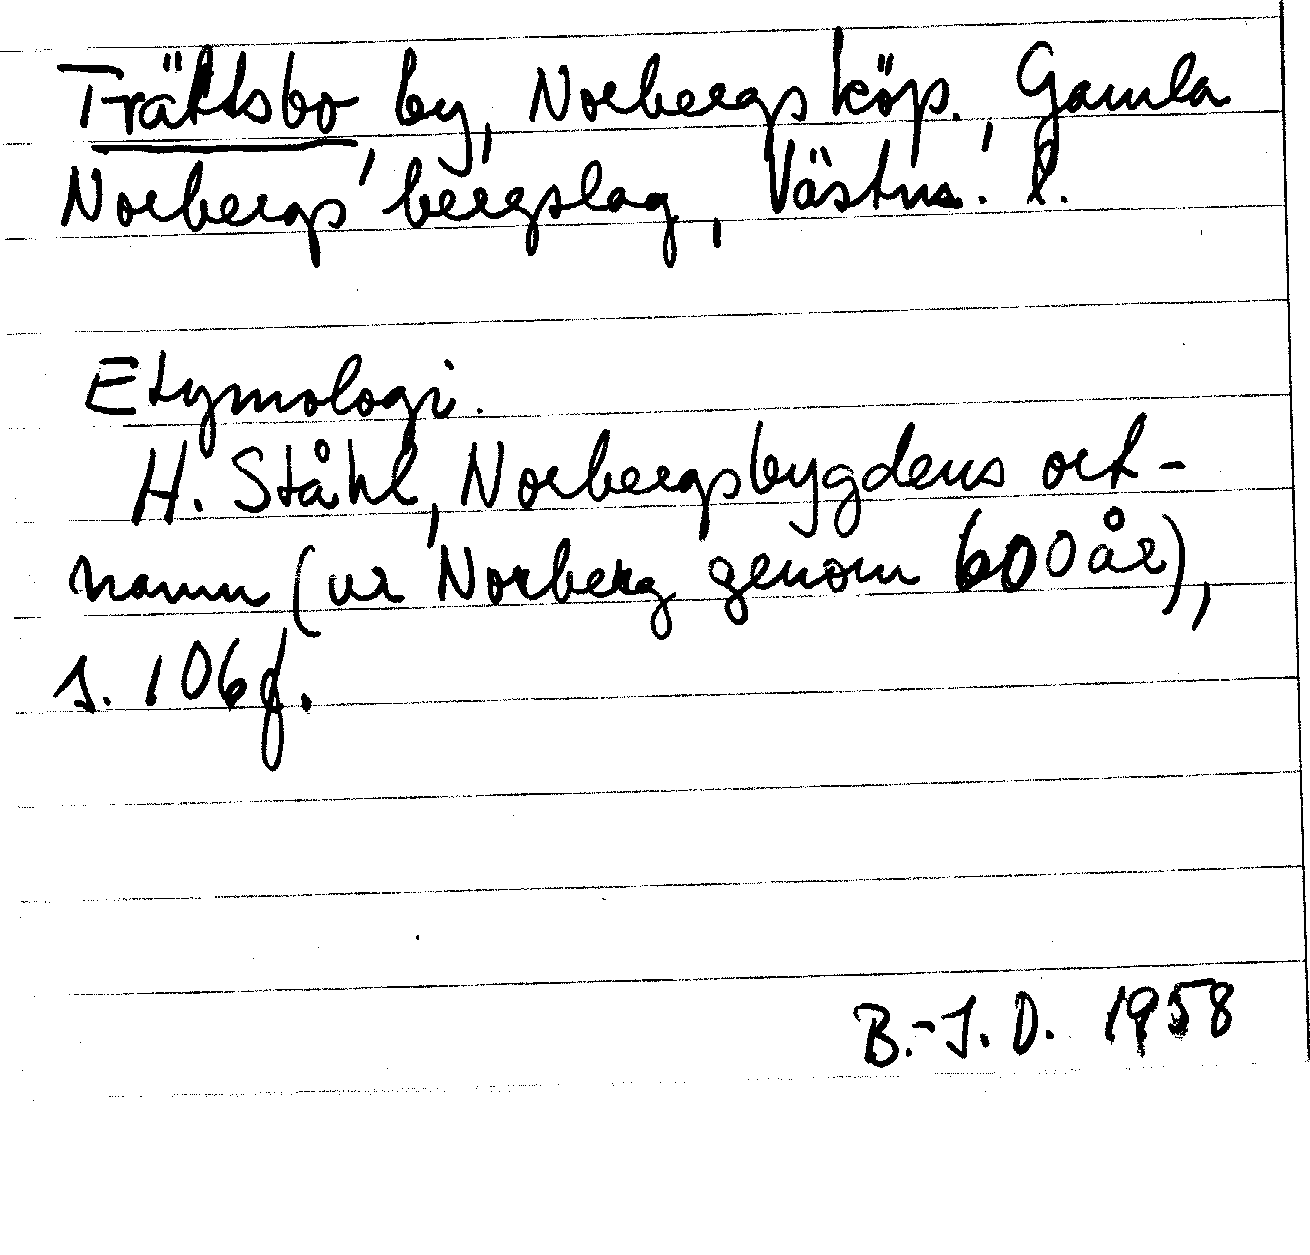 Trättsbo by, Norbergs köp., Gamla
Norbergs bergslag, Västm. l.
Etymologi.
H. Ståhl, Norbergsbygdens ort-
namn (ur Norberg genom 600 år),
s. 106 f.
B.-J. D. 1958